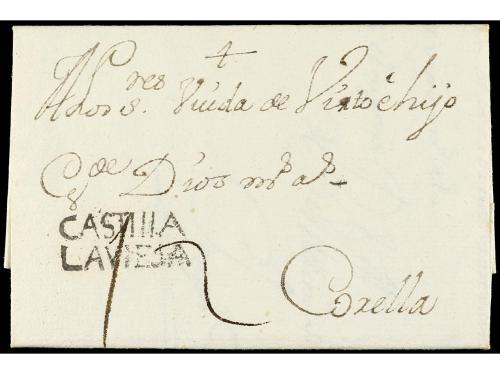 +
A los S.res Viuda de Virto é hijo
q.e g.de Dios m.s a.s
CASTILLA
LAVIEJA
12
Corella